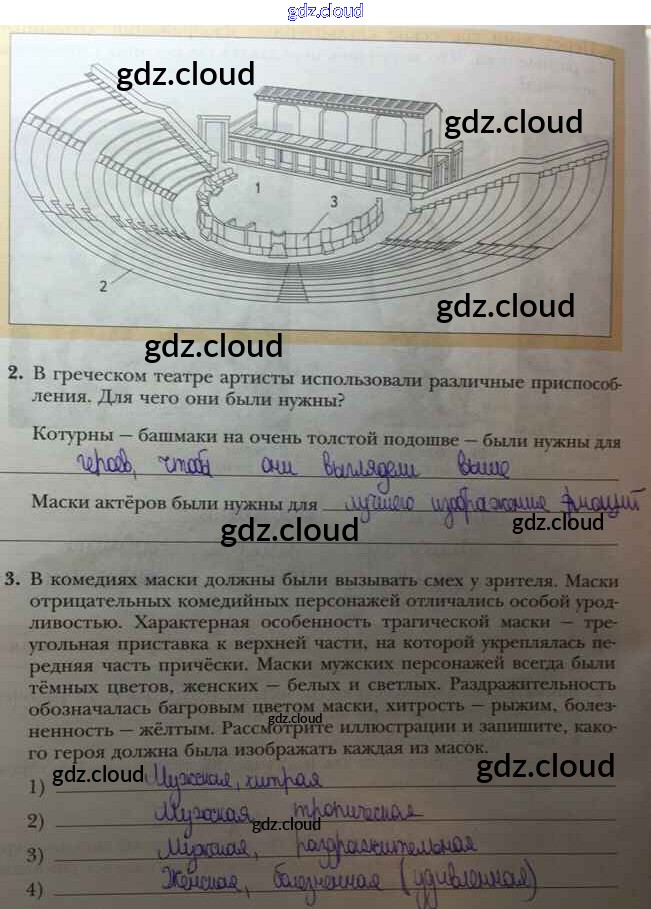 gdz.cloud
gdz.cloud
gdz.cloud
1
3
2
gdz.cloud
gdz.cloud
2. В греческом театре артисты использовали различные приспособ-
ления. Для чего они были нужны?
Котурны — башмаки на очень толстой подошве — были нужны для
героев, чтобы они выглядели выше
Маски актёров были нужны для лучшего изображения эмоций
gdz.cloud gdz.cloud
3. В комедиях маски должны были вызывать смех у зрителя. Маски
отрицательных комедийных персонажей отличались особой урод-
ливостью. Характерная особенность трагической маски — тре-
угольная приставка к верхней части, на которой укреплялась пе-
редняя часть причёски. Маски мужских персонажей всегда были
тёмных цветов, женских — белых и светлых. Раздражительность
обозначалась багровым цветом маски, хитрость — рыжим, болез-
gdz.cloud
ненность — жёлтым. Рассмотрите иллюстрации и запишите, како-
го героя должна была изображать каждая из масок.
gdz.cloud gdz.cloud
1) Мужская, хитрая
2) Мужская, трагическая
gdz.cloud
3) Мужская, раздражительная
4) Женская, болезненная (удивленная)